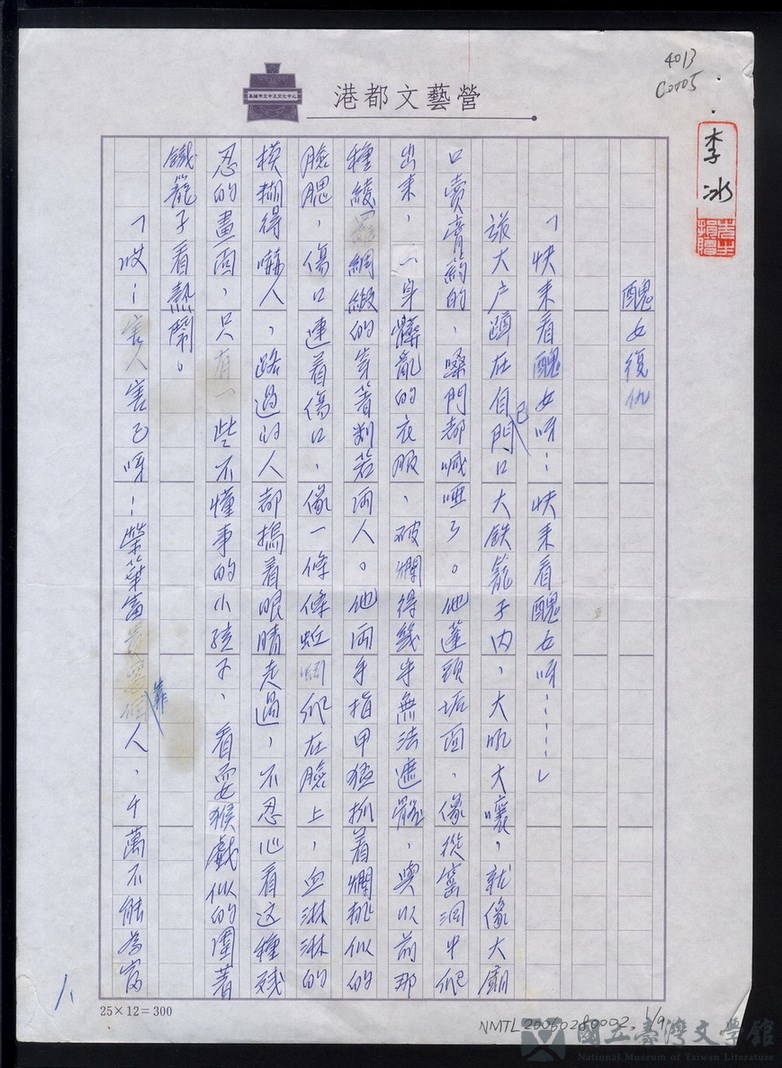 4013
C0005
港都文藝營
李冰
先生捐贈
醜女復仇
「快來看醜女呀…快來看醜女呀……」
張大户蹲在自己門口大鉄籠子內,大吼大嚷,就像大廟
口賣膏葯的,嗓門都喊啞了。他蓬頭垢面,像從窰洞中爬
出來,一身髒亂的衣服,破爛得幾乎無法遮體,與以前那
種綾羅綢緞的穿著判若両人。他両手指甲猛抓着爛桃似的
臉腮,傷口連着傷口,像一條條蚯蚓爬在臉上,血淋淋的
模糊得嚇人,路過的人都摀着眼睛走過,不忍心看这種殘
忍的畫面,只有一些不懂事的小孩子,看耍猴戲似的圍着
鐵籠子看熱鬧。
「哎…害人害己呀…榮華富 靠人,千萬不能為富
25×12=300
NMTL20050280002 1/9
國立臺灣文學館
National Museum of Taiwan Literature